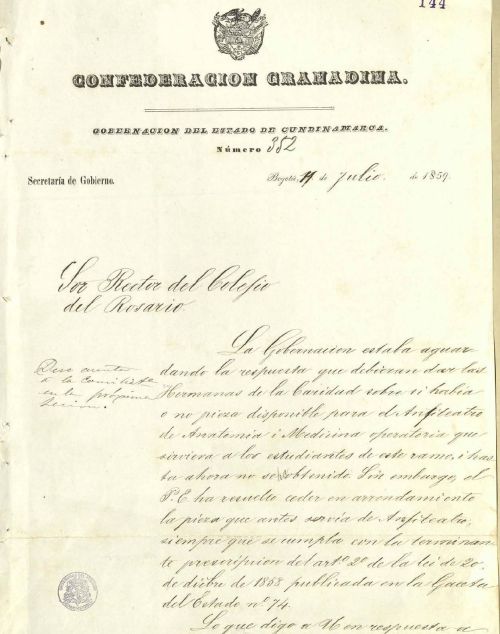 144
CONFEDERACION GRANADINA.
GOBERNACION DEL ESTADO DE CUNDINAMARCA.
Número 352
Secretaría de Gobierno.
Bogotá, 11 de Julio de 1859.
Sor Rector del Colejio
del Rosario.
La Gobernacion estaba aguar
dando la respuesta que debieran dar las
Hermanas de la Caridad sobre si había
o no pieza disponible para el Anfiteatro
de Anatomía i Medicina operatoria que
sirviera a los estudiantes de este ramo, i has
ta ahora no se obtenido. Sin embargo, el
P. E. ha resuelto ceder en arrendamiento
la pieza que antes servía de Anfiteatro,
siempre que se cumpla con la terminan
te prescripcion del artº 2º de la lei de 20
de dicbre de 1858 publicada en la Gaceta
del Estado nº 74.
Lo que digo a U en respuesta a
Dese cuenta
a la
en la próxima
sesion.